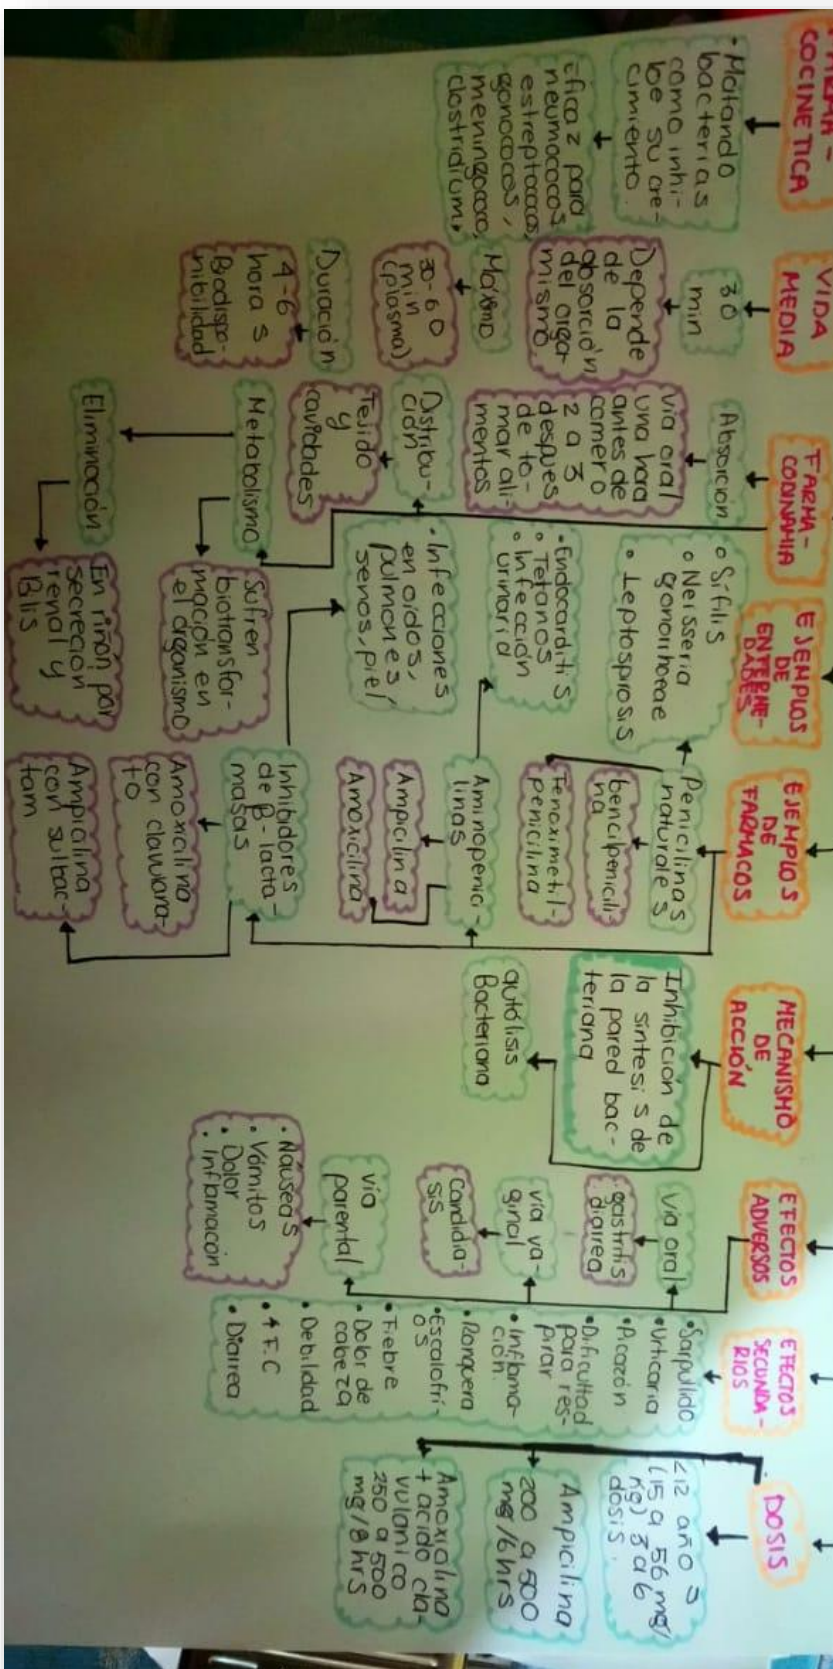 COCINETICA
• Matando
bacterias
como inhi-
be su cre-
cimiento.
Eficaz para
neumococos,
estreptococos,
gonococos,
meningococo,
clostridium.
VIDA
MEDIA
30
min
Depende
de la
absorción
del orga-
mismo.
Máximo
30-60
min
(plasma)
Duración
4-6
horas
Biodispo-
nibilidad
FARMA-
CODINAMIA
Absorción
vía oral
una hora
antes de
comer o
2 a 3
despues
de to-
mar ali-
mentos
Distribu-
ción
Tejido
y
cavidades
Metabolismo
Sufren
biotransfor-
mación en
el organismo
Eliminación
En riñón por
secreción
renal y
Blis
EJEMPLOS
DE
ENFERME-
DADES
• Sífilis
• Neisseria
gonorrhoeae
• Leptospirosis
• Endocarditis
• Tetanos
• Infección
urinaria
• Infecciones
en oídos,
pulmones,
senos, piel
EJEMPLOS
DE
FARMACOS
Penicilinas
naturales
bencilpenicili-
na
Fenoximetil-
penicilina
Aminopenici-
linas
Ampicilina
Amoxicilina
Inhibidores
de B-lacta-
masas
Amoxicilina
con clavulana-
to
Ampicilina
con sulbac-
tam
MECANISMO
DE
ACCIÓN
Inhibición de
la síntesis de
la pared bac-
teriana
autólisis
Bacteriana
EFECTOS
ADVERSOS
Vía oral
gastritis
diarrea
vía va-
ginal
Candidia-
sis
vía
parental
• Náuseas
• Vómitos
• Dolor
• Inflamación
EFECTOS
SECUNDA-
RIOS
• Sarpullido
• Urticaria
• Picazón
• Dificultad
para res-
pirar
• Inflama-
ción.
• Ronquera
• Escalofrí-
os
• Fiebre
• Dolor de
cabeza
• Debilidad
• ↑ F.C
• Diarrea
DOSIS
<12 años
(15 a 56 mg/
kg) 3 a 6
dosis.
Ampicilina
200 a 500
mg/6hrs
Amoxicilina
+ acido cla-
vulanico
250 a 500
mg/8hrs